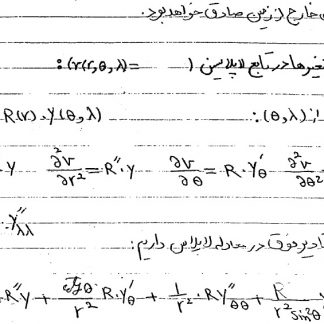 خارج از زمین صادق خواهد بود.
متغیرها در تابع لاپلاس ( v(r,θ,λ)= ) :
از (θ,λ) :
R(r).Y(θ,λ)
Y ∂²v/∂r² = R″.Y ∂v/∂θ = R.Y′θ ∂²v/∂θ²
Y″λλ
فوق در معادله لاپلاس داریم:
R″Y + θ/r² R.Y′θ + 1/r² . RY″θθ + R/r² sin²θ